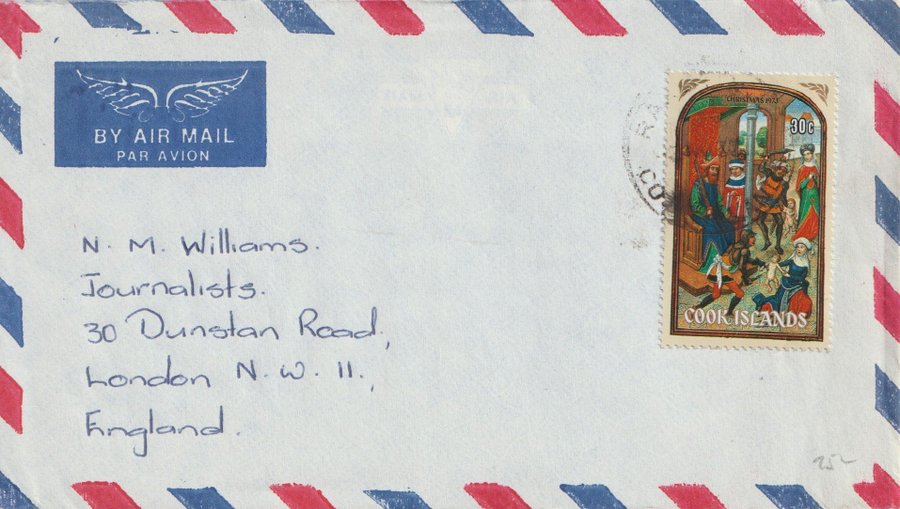 BY AIR MAIL
PAR AVION
CHRISTMAS 1973
30c
COOK ISLANDS
N. M. Williams.
Journalists.
30 Dunstan Road,
London N. W. 11.,
England.